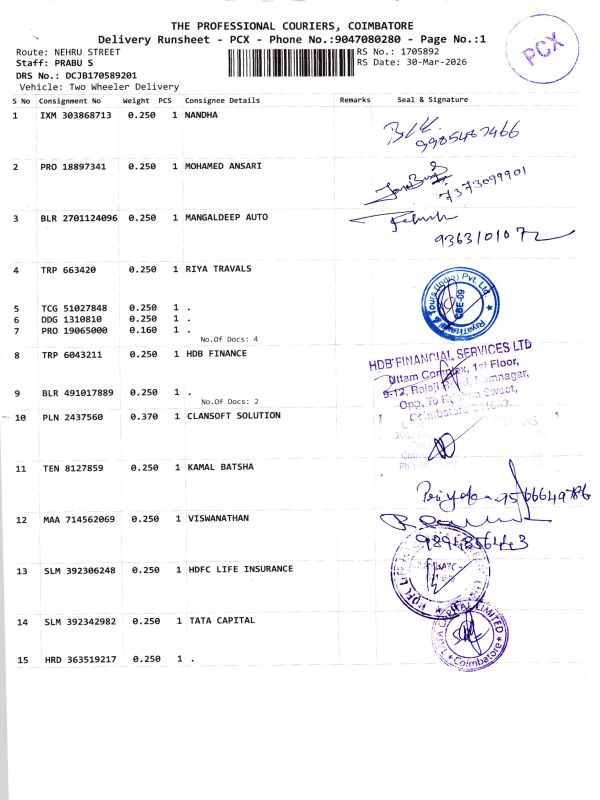 THE PROFESSIONAL COURIERS, COIMBATORE
Delivery Runsheet - PCX - Phone No.:9047080280 - Page No.:1
PCX
Route: NEHRU STREET
RS No.: 1705892
Staff: PRABU S
RS Date: 30-Mar-2026
DRS No.: DCJB170589201
Vehicle: Two Wheeler Delivery
S No Consignment No Weight PCS Consignee Details Remarks Seal & Signature
1 IXM 303868713 0.250 1 NANDHA
2 PRO 18897341 0.250 1 MOHAMED ANSARI
7373099901
3 BLR 2701124096 0.250 1 MANGALDEEP AUTO
9363101072
4 TRP 663420 0.250 1 RIYA TRAVALS
Riya Travel & Tours (India) Pvt. Ltd.
CBE-09
5 TCG 51027848 0.250 1 .
6 DDG 1310810 0.250 1 .
7 PRO 19065000 0.160 1 .
No.Of Docs: 4
8 TRP 6043211 0.250 1 HDB FINANCE
HDB FINANCIAL SERVICES LTD
Uttam Complex, 1st Floor,
9 BLR 491017889 0.250 1 .
No.Of Docs: 2
10 PLN 2437560 0.370 1 CLANSOFT SOLUTION
11 TEN 8127859 0.250 1 KAMAL BATSHA
Priya 9566649786
12 MAA 714562069 0.250 1 VISWANATHAN
13 SLM 392306248 0.250 1 HDFC LIFE INSURANCE
HDFC LIFE
14 SLM 392342982 0.250 1 TATA CAPITAL
TATA CAPITAL LIMITED
Coimbatore
15 HRD 363519217 0.250 1 .